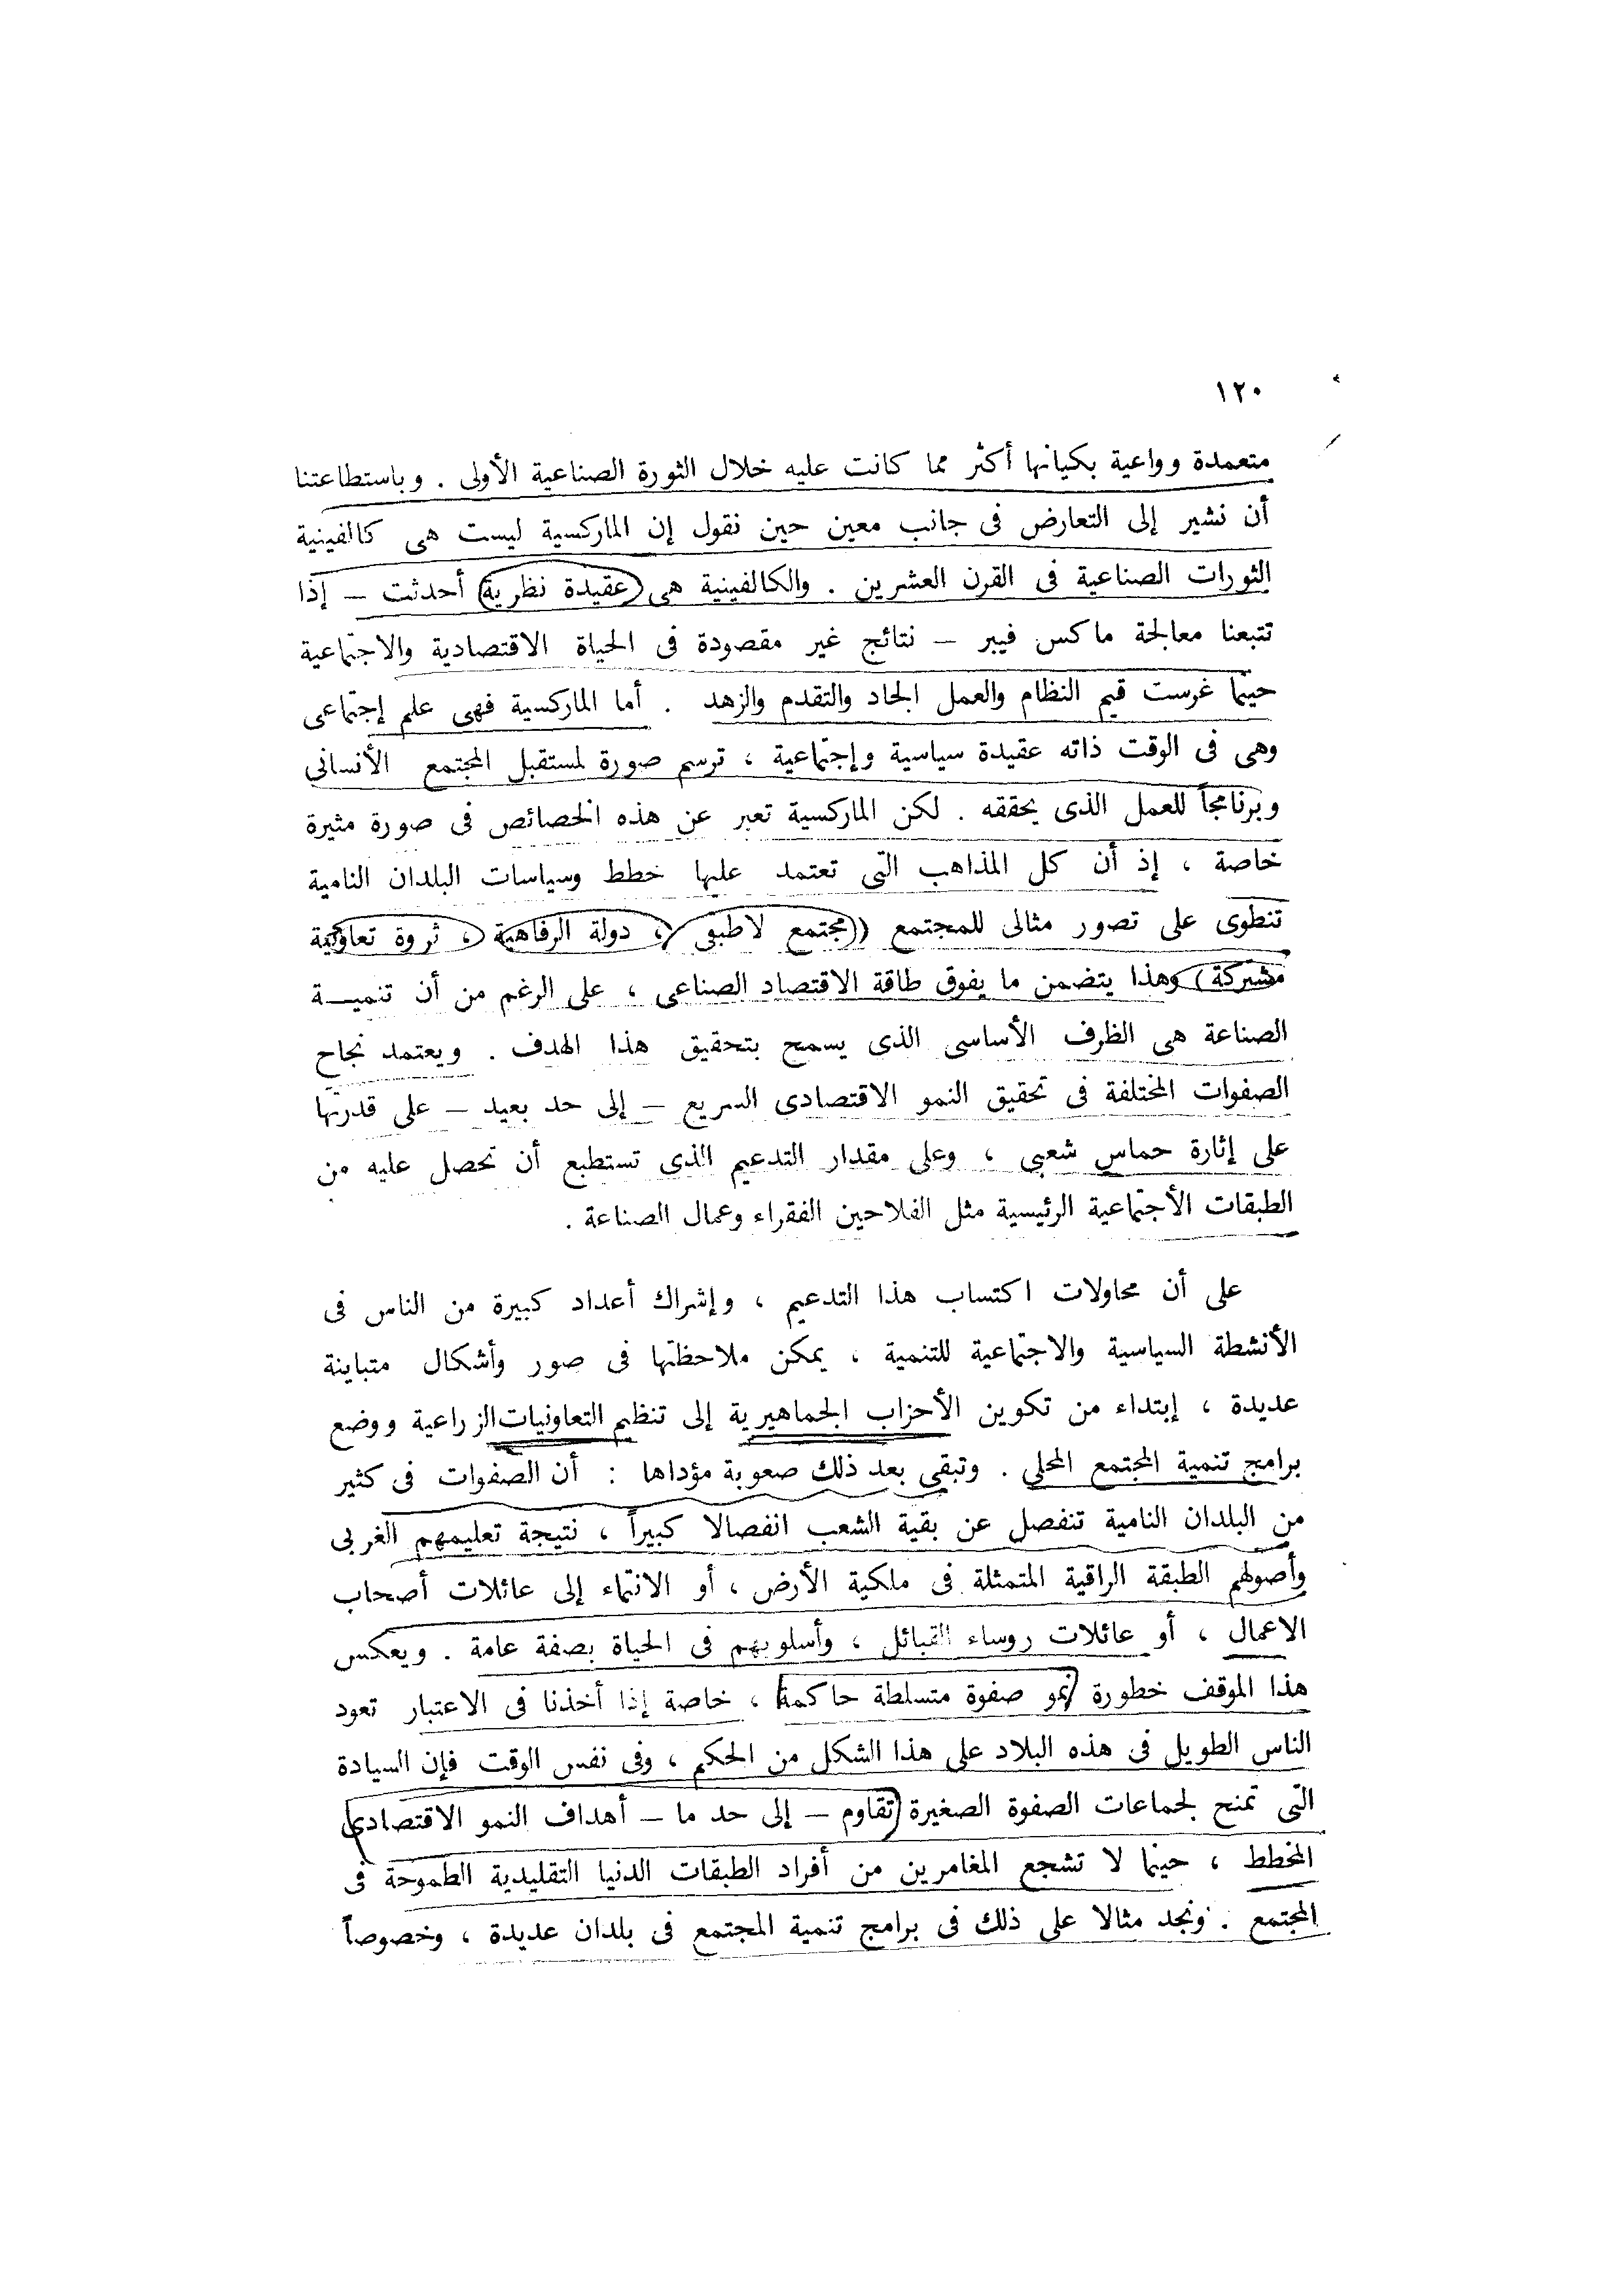 ١٢٠
متعمدة وواعية بكيانها أكثر مما كانت عليه خلال الثورة الصناعية الأولى . وباستطاعتنا
أن نشير إلى التعارض فى جانب معين حين نقول إن الماركسية ليست هى كالفينية
الثورات الصناعية فى القرن العشرين . والكالفينية هى عقيدة نظرية أحدثت – إذا
تتبعنا معالجة ماكس فيبر – نتائج غير مقصودة فى الحياة الاقتصادية والاجتماعية
حينما غرست قيم النظام والعمل الجاد والتقدم والزهد . أما الماركسية فهى علم إجتماعى
وهى فى الوقت ذاته عقيدة سياسية وإجتماعية ، ترسم صورة لمستقبل المجتمع الأنسانى
وبرنامجاً للعمل الذى يحققه . لكن الماركسية تعبر عن هذه الخصائص فى صورة مثيرة
خاصة ، إذ أن كل المذاهب التى تعتمد عليها خطط وسياسات البلدان النامية
تنطوى على تصور مثالى للمجتمع ( مجتمع لاطبقى ، دولة الرفاهية ، ثروة تعاونية
مشتركة ) وهذا يتضمن ما يفوق طاقة الاقتصاد الصناعى ، على الرغم من أن تنميـــة
الصناعة هى الظرف الأساسى الذى يسمح بتحقيق هذا الهدف . ويعتمد نجاح
الصفوات المختلفة فى تحقيق النمو الاقتصادى السريع – إلى حد بعيد – على قدرتها
على إثارة حماس شعبى ، وعلى مقدار التدعيم الذى تستطيع أن تحصل عليه من
الطبقات الأجتماعية الرئيسية مثل الفلاحين الفقراء وعمال الصناعة .
على أن محاولات اكتساب هذا التدعيم ، وإشراك أعداد كبيرة من الناس فى
الأنشطة السياسية والاجتماعية للتنمية ، يمكن ملاحظتها فى صور وأشكال متباينة
عديدة ، إبتداء من تكوين الأحزاب الجماهيرية إلى تنظيم التعاونيات الزراعية ووضع
برامج تنمية المجتمع المحلى . وتبقى بعد ذلك صعوبة مؤداها : أن الصفوات فى كثير
من البلدان النامية تنفصل عن بقية الشعب انفصالا كبيراً ، نتيجة تعليمهم الغربى
وأصولهم الطبقة الراقية المتمثلة فى ملكية الأرض ، أو الانتماء إلى عائلات أصحاب
الاعمال ، أو عائلات روساء القبائل ، وأسلوبهم فى الحياة بصفة عامة . ويعكس
هذا الموقف خطورة نمو صفوة متسلطة حاكمة ، خاصة إذا أخذنا فى الاعتبار تعود
الناس الطويل فى هذه البلاد على هذا الشكل من الحكم ، وفى نفس الوقت فإن السيادة
التى تمنح لجماعات الصفوة الصغيرة تقاوم – إلى حد ما – أهداف النمو الاقتصادى
المخطط ، حينما لا تشجع المغامرين من أفراد الطبقات الدنيا التقليدية الطموحة فى
المجتمع . ونجد مثالا على ذلك فى برامج تنمية المجتمع فى بلدان عديدة ، وخصوصاً